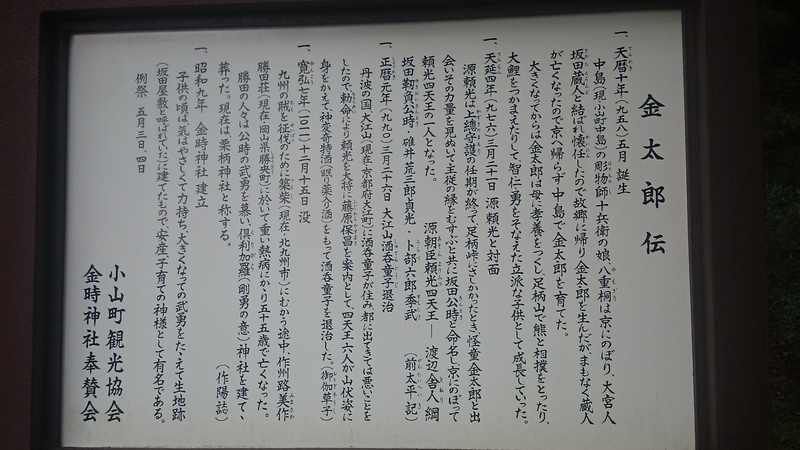 金太郎伝
一、天暦十年(九五八)五月 誕生
中島(現小山町中島)の彫物師十兵衛の娘、八重桐は京にのぼり、大宮人
坂田蔵人と結ばれ懐任したので故郷に帰り金太郎を生んだが、まもなく蔵人
が亡くなったので京へ帰らず中島で金太郎を育てた。
大きくなってからは金太郎は母に孝養をつくし、足柄山で熊と相撲をとったり、
大鯉をつかまえたりして、智仁勇をそなえた立派な子供として成長していった。
一、天延四年(九七六)三月二十一日 源頼光と対面
源頼光は上總守護の任期が終って足柄峠にさしかかったとき、怪童金太郎と出
会いその力量を見ぬいて主従の縁をむすぶと共に坂田公時と命名し京にのぼって
頼光四天王の一人となった。 源朝臣頼光四天王―渡辺舍人綱
坂田靱負公時、碓井荒三郎貞光・卜部六郎季武 (前太平記)
一、正暦元年(九九〇)三月二十六日 大江山酒呑童子退治
丹波の国、大江山(現在京都府大江町)に酒呑童子が住み、都に出てきては悪いことを
したので、勅命により頼光を大将に藤原保昌を案内として、四天王ら六人が山伏姿に
身をかえて、神変奇特酒(眠り薬入り酒)をもって酒呑童子を退治した。(御伽草子)
一、寛弘七年(一〇一一)十二月十五日 没
九州の賊を征伐のために築紫(現在 北九州市)にむかう途中、作州路美作
勝田荘(現在岡山県勝央町)に於いて重い熱病にかかり五十五歳で亡くなった。
勝田の人々は公時の武勇を慕い、倶利加羅(剛勇の意)神社を建て、
葬った。現在は、栗柄神社と称する。 (作陽誌)
一、昭和九年 金時神社 建立
子供の頃は、気はやさしくて力持ち、大きくなっての武勇をたゝえて生地跡
(坂田屋敷と呼ばれていた)に建てたもので、安産、子育ての神様として有名である。
例祭 五月三日、四日
小山町観光協会
金時神社奉賛会